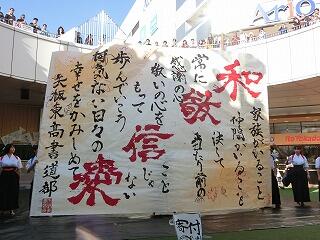 和
家族がいること
仲間がいること
決して
当たり前の
ことじゃない
常に
感謝の心
敬
敬いの心を
もって
信
歩んでいこう
何気ない日々の
幸せをかみしめて
楽
矢板東高書道部
Ario
Ito Yokado